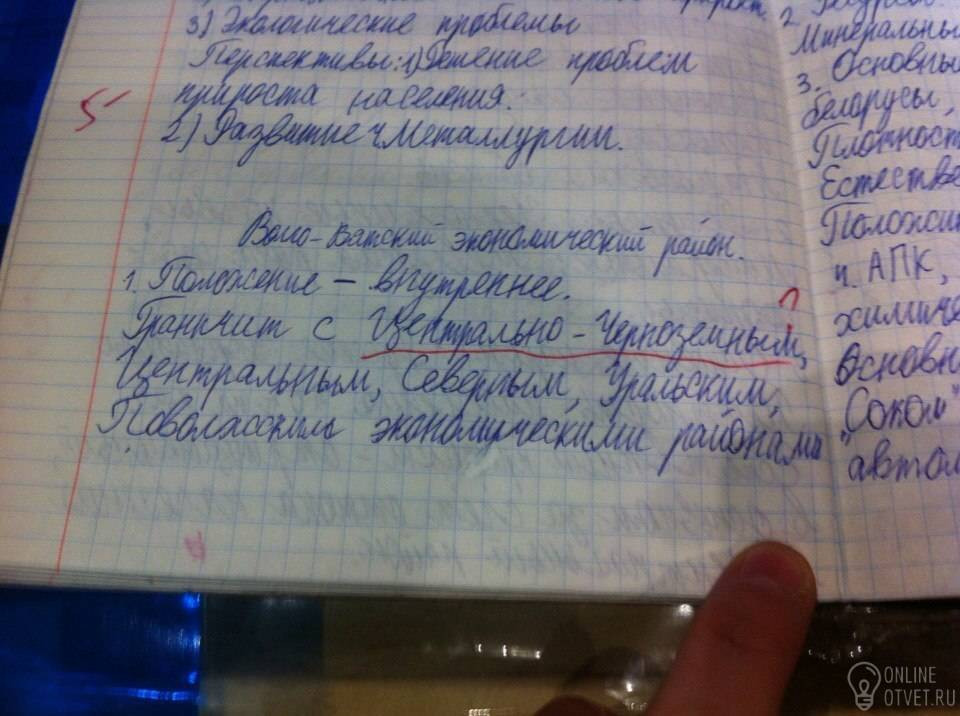 3) Экологические проблемы
Перспективы: 1) Решение проблем
прироста населения.
2) Развитие ч Металлургии.
5
Волго-Вятский экономический район.
1. Положение – внутреннее.
Граничит с Центрально-Черноземным,
Центральным, Северным, Уральским,
Поволжским экономическими районами
2.
Минеральны
3. Основны
беларусы,
Плотност
Естестве
Положит
ч. АПК,
химиче
Основн
"Сокол"
автом
ONLINE
OTVET.RU